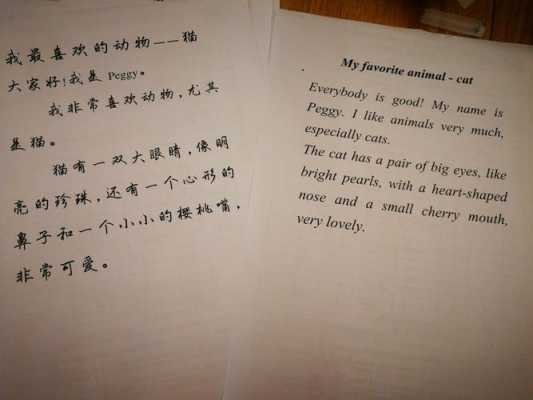 我最喜欢的动物——猫
大家好!我是 Peggy。
我非常喜欢动物,尤其
是猫。
猫有一双大眼睛,像明
亮的珍珠,还有一个心形的
鼻子和一个小小的樱桃嘴,
非常可爱。
My favorite animal - cat
Everybody is good! My name is
Peggy. I like animals very much,
especially cats.
The cat has a pair of big eyes, like
bright pearls, with a heart-shaped
nose and a small cherry mouth,
very lovely.